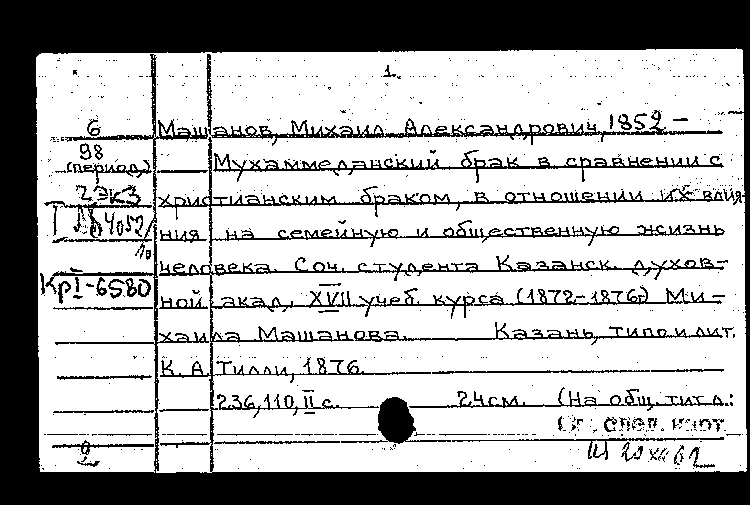 1.
6 Машанов, Михаил Александрович, 1852 –
98 (период.) Мухаммеданский брак в сравнении с
2 экз христианским браком, в отношении их влия-
ния на семейную и общественную жизнь
человека. Соч. студента Казанск. духов-
КрI-6580 ной акад. XVII учеб. курса (1872-1876г.) Ми-
хаила Машанова. Казань, типо и лит.
К. А. Тилли, 1876.
236, 110, II с. 24см. (На общ. тит. л.:
См. след. карт.
2